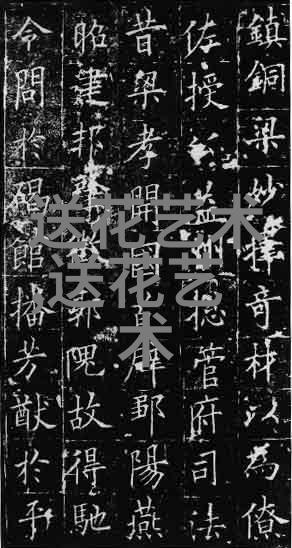 鎮銅梁妙擇奇材以為僚
佐授公益州捴管府司法
昔梁孝開國首辟鄒陽燕
昭建邦肇徵郭隗故得馳
令問於碣館播芳猷於平
送花艺术
送花艺
术